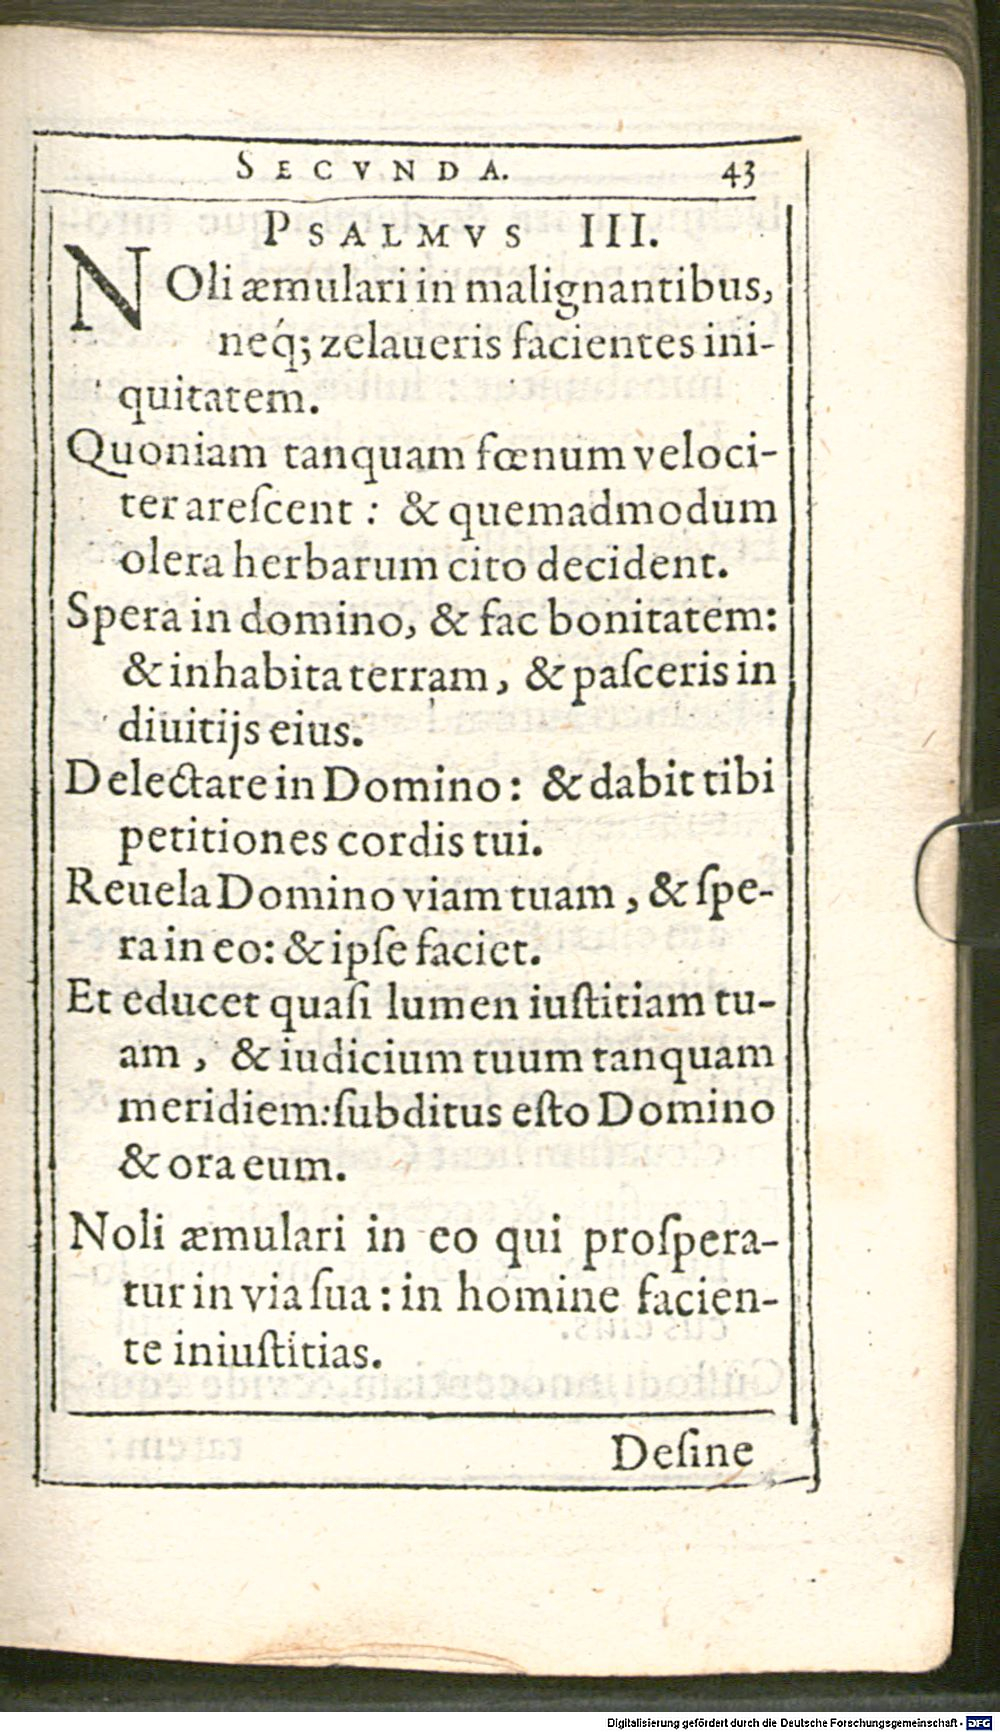 SECVNDA. 43
PSALMVS III.
NOli æmulari in malignantibus,
neq́; zelaueris facientes ini-
quitatem.
Quoniam tanquam fœnum veloci-
ter areſcent : & quemadmodum
olera herbarum cito decident.
Spera in domino, & fac bonitatem:
& inhabita terram, & paſceris in
diuitijs eius.
Delectare in Domino: & dabit tibi
petitiones cordis tui.
Reuela Domino viam tuam, & ſpe-
ra in eo: & ipſe faciet.
Et educet quaſi lumen iuſtitiam tu-
am, & iudicium tuum tanquam
meridiem: ſubditus eſto Domino
& ora eum.
Noli æmulari in eo qui proſpera-
tur in via ſua: in homine facien-
te iniuſtitias.
Deſine
Digitalisierung gefördert durch die Deutsche Forschungsgemeinschaft - DFG